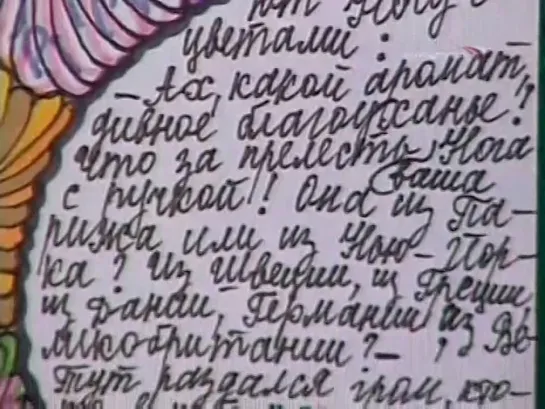 ют Ногу с
цветами:
— Ах, какой аромат,
дивное благоуханье!
Что за прелесть Нога
ваша
с ручкой! Она из Па-
рижа или из Нью-Йор-
ка? Из Швеции, из Греции,
из Дании, Германии из Ве-
ликобритании? — ?
Тут раздался гром, кто-